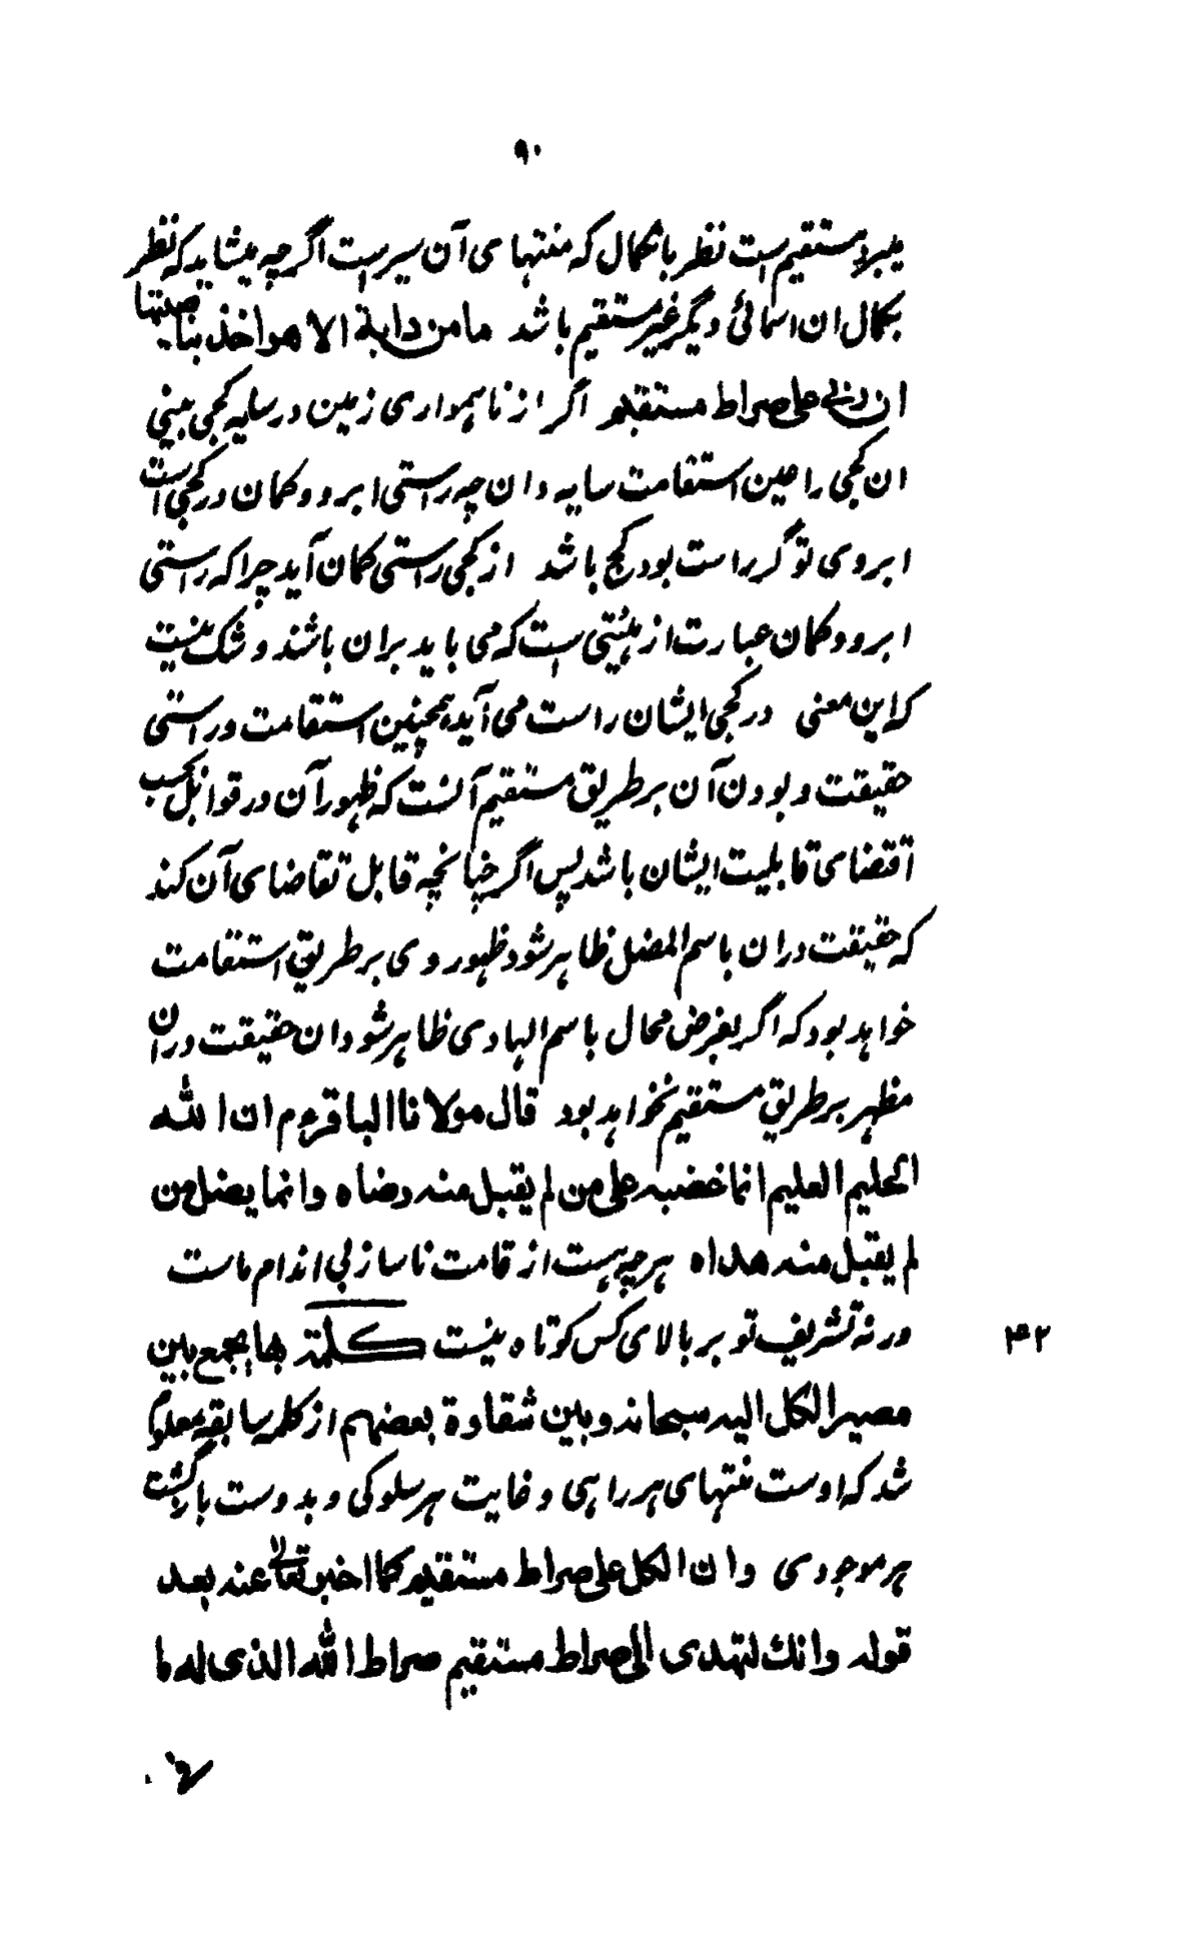 ۹۰
میبرد مستقیم است نظر بانکمال که منتهای آن سیر است اگر چه میشاید که نظر
بکمال ان اسمائی دیگر غیر مستقیم باشد ما من دابة الا هو اخذ بناصیتها
ان ربی علی صراط مستقیم اگر از ناهمواری زمین در سایه کجی بینی
ان کجی را عین استقامت سایه دان چه راستی ابرو و کمان در کجی است
ابروی تو گر راست بود کج باشد از کجی راستی کمان آید چرا که راستی
ابرو و کمان عبارت از هیئتی است که می باید بران باشند و شک نیست
که این معنی در کجی ایشان راست می آید همچنین استقامت و راستی
حقیقت و بودن آن بر طریق مستقیم آنست که ظهور آن در قوابل بحسب
اقتضای قابلیت ایشان باشد پس اگر چنانچه قابل تقاضای آن کند
که حقیقت دران باسم المضل ظاهر شود ظهور وی بر طریق استقامت
خواهد بود که اگر بفرض محال باسم الهادی ظاهر شود ان حقیقت دران
مظهر بر طریق مستقیم نخواهد بود قال مولانا الباقر ع م ان الله
الحلیم العلیم انما غضبه علی من لم یقبل منه رضاه وانما یضل من
لم یقبل منه هداه هر چه هست از قامت ناساز بی اندام ماست
ورنه تشریف تو بر بالای کس کوتاه نیست کلمة بها یجمع بین
۴۲
مصیر الکل الیه سبحانه و بین شقاوة بعضهم از کلمه سابقه معلوم
شد که اوست منتهای هر راهی و غایت هر سلوکی و بدوست بازگشت
هر موجودی وان الکل علی صراط مستقیم کما اخبر تعالی عنه بعد
قوله وانك لتهدی الی صراط مستقیم صراط الله الذی له ما